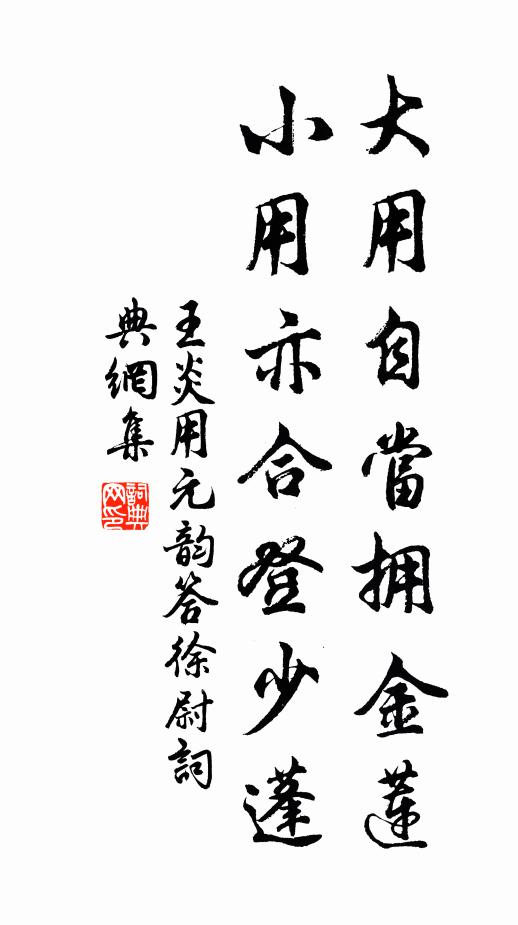 大用自當拥金蓮
小用亦合登少蓬
王炎用元韵答徐尉詞
典網集
詞典网印